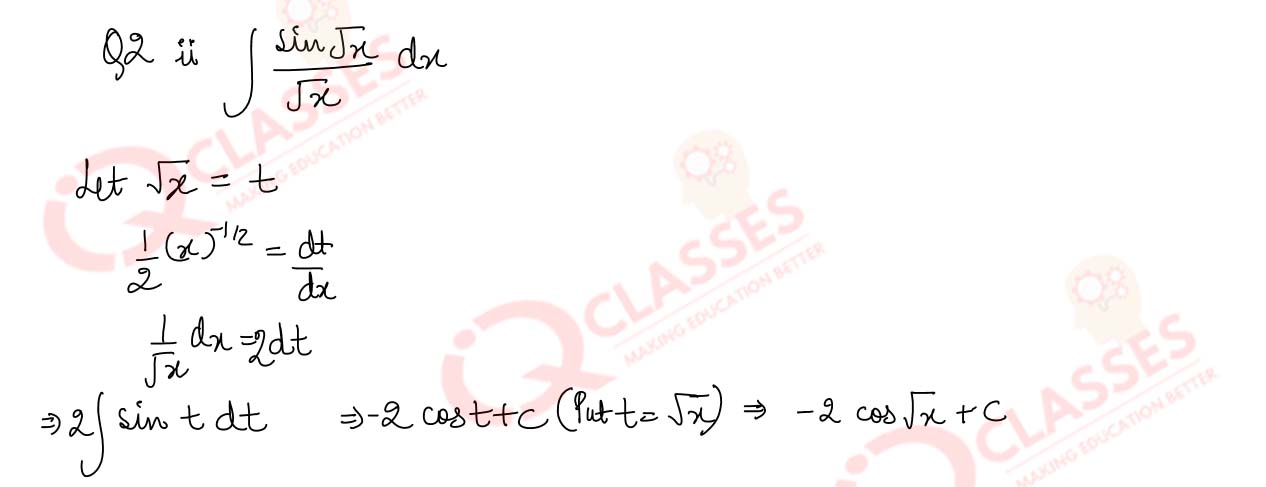 Q2 ii ∫ sin√x/√x dx
Let √x = t
1/2 (x)^-1/2 = dt/dx
1/√x dx = 2dt
⇒ 2∫ sin t dt ⇒ -2 cos t + c (Put t = √x) ⇒ -2 cos√x + c
iQ CLASSES
MAKING EDUCATION BETTER
iQ CLASSES
MAKING EDUCATION BETTER
iQ CLASSES
MAKING EDUCATION BETTER